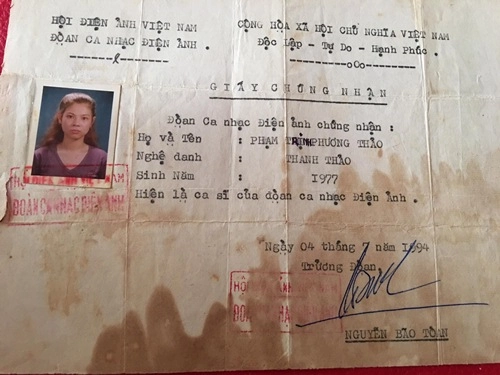 HỘI ĐIỆN ẢNH VIỆT NAM
ĐOÀN CA NHẠC ĐIỆN ẢNH .
CỘNG HÒA XÃ HỘI CHỦ NGHĨA VIỆT NAM
Độc Lập - Tự Do - Hạnh Phúc .
-----oOo-----
GIẤY CHỨNG NHẬN
Đoàn Ca nhạc Điện ảnh chứng nhận :
Họ và Tên : PHẠM TRỊNH PHƯƠNG THẢO
Nghệ danh : THANH THẢO
Sinh Năm : 1977
Hiện là ca sĩ của đoàn ca nhạc Điện Ảnh .
HỘI ĐIỆN ẢNH VIỆT NAM
ĐOÀN CA NHẠC ĐIỆN ẢNH
Ngày 04 tháng 7 năm 1994
Trưởng Đoàn
NGUYỄN BẢO TOÀN